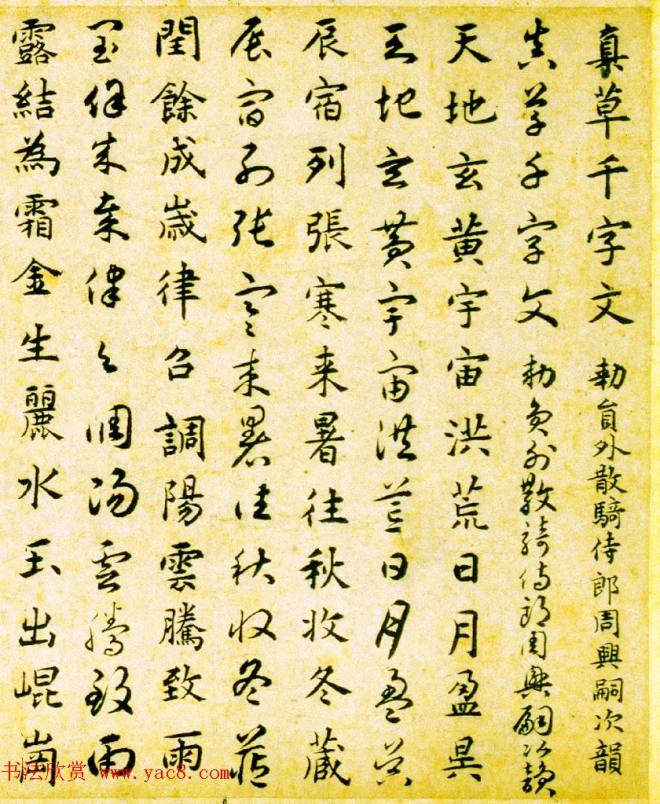 真草千字文 勅員外散騎侍郎周興嗣次韻
真草千字文 勅員外散騎侍郎周興嗣次韻
天地玄黄宇宙洪荒日月盈昃
天地玄黄宇宙洪荒日月盈昃
辰宿列張寒来暑往秋收冬藏
辰宿列張寒来暑往秋收冬藏
閏餘成歲律召調陽雲騰致雨
閏餘成歲律召調陽雲騰致雨
露結為霜金生麗水玉出崐崗
书法欣赏 www.yac8.com